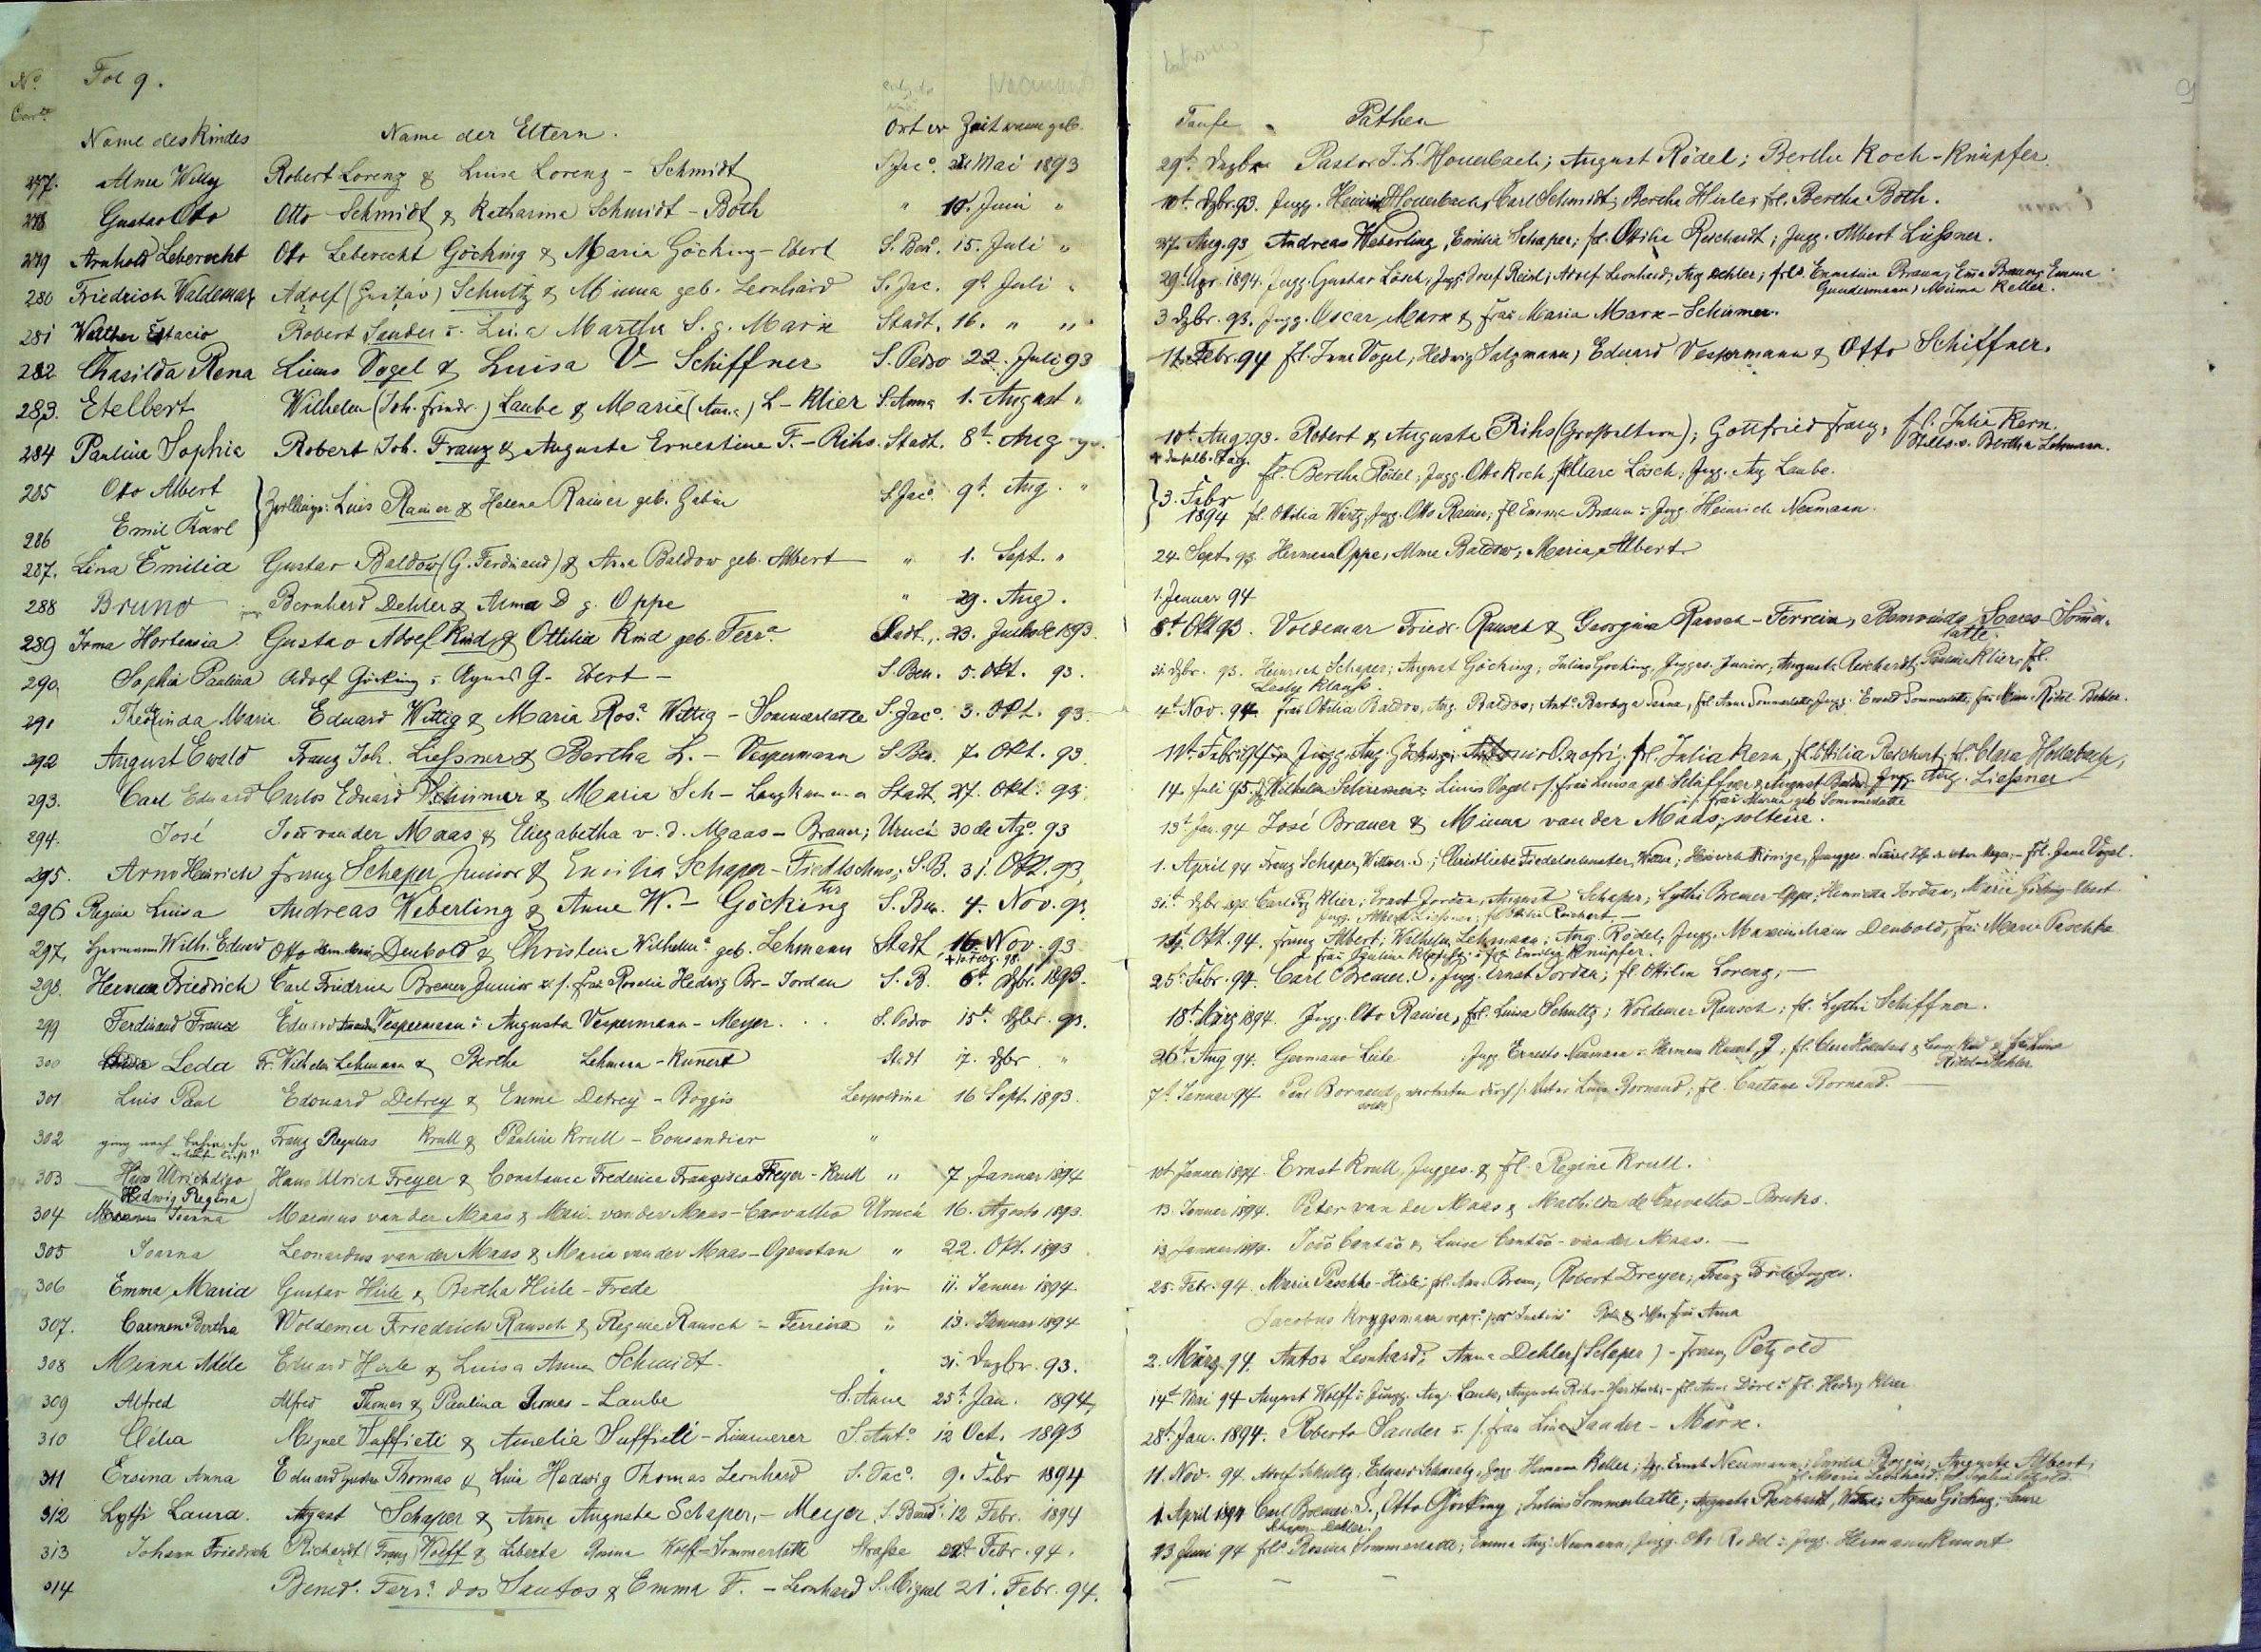 No Fol 9.
Name des Kindes Name der Eltern. Ort u Zeit wann geb. Taufe Pathen
277. Alma Willy Robert Lorenz & Luisa Lorenz - Schmidt S. Jaco. Mai 1893 29t. Dezbr Pastor J. L. Hollerbach; August Rödel; Bertha Koch - Knüpfer
278 Gustav Otto Otto Schmidt & Katharina Schmidt - Both " 10. Juni " 10t. Dzbr. 93. Jugg. Heinrich Hollerbach, Carl Schmidt; Bertha Hirle; fl. Bertha Both.
279 Arnhold Leberecht Otto Leberecht Göcking & Maria Göcking - Ebert S. Ben. 15. Juli " 27. Aug. 93 Andreas Weberling, Emilia Schaper; fl. Otilia Reichardt; Jugg. Albert Liessner.
280 Friedrich Waldemar Adolf (Gustav) Schultz & Minna geb. Leonhard S. Jac. 9t. Juli " 29. Apr. 1894. Jugg. Gustav Lösch, Jugg. Josef Reidl; Adolf Leonhard; Aug Dehler; frls. Ernestina Braun; Ema Braun; Emma
Gundermann, Minna Keller.
281 Walther Estacio Robert Sander u. Lina Martha S. g. Marx Stadt, 16. " " 3 Dzbr. 93. Jugg. Oscar Marx & frau Maria Marx - Schirmer.
282 Chasilda Rena Linus Vogel & Luisa V - Schiffner S. Pedro 22. Juli 93 11. Febr. 94 fl. Irma Vogel, Hedwig Salzmann, Eduard Vespermann & Otto Schiffner.
283. Etelbert Wilhelm (Joh. Friedr.) Laube & Marie (Anna) L - Klier S. Anna 1. August "
284 Paulina Sophia Robert Joh. Franz & Auguste Ernestine F. - Rihs. Stadt. 8t. Aug 93. 10t. Aug. 93. Robert & Augusta Rihs (Grosseltern); Gottfried Franz, fl. Julia Kern.
Bertha Lehmann.
285 Otto Albert Zwillinge: Luis Rainer & Helena Rainer geb. S. Jaco. 9t. Aug. " fl. Bertha Rödel, Jugg. Otto Koch, fl Clara Lösch, Jugg. Aug Laube.
3. Febr
286 Emil Karl 1894 fl. Otilia Wurtz, Jugg. Otto Rainer; fl Emma Braun u. Jugg. Heinrich Neumann
287. Lina Emilia Gustav Baldow (G. Ferdinand) & Anna Baldow geb. Albert " 1. Sept. " 24. Sept. 93. Herman Oppe, Alma Baldow, Maria Albert
288 Bruno Bernhard Dehler & Alma D g. Oppe " 29. Aug. 1. Januar 94
289 Irma Hortensia Gustavo Adolf Kind & Ottilia Kind geb. Ferra. Stadt, 23. Junho de 1893. 8t. Okt 93. Voldemar Friedr. Rausch & Georgina Rausch - Ferreira, Soares - Sommer-
latte.
290. Sophia Paulina Adolf Göcking u. Agnes G. Ebert - S. Ben. 5. Okt. 93. 31. Dzbr. 93. Heinrich Schaper; August Göcking; Julius Göcking, Jugges. Junior; Augusta Reichardt; Paulina Klier, fl.
291 Theolinda Maria Eduard Wittig & Maria Rosa. Wittig - Sommerlatte S. Jaco. 3. Okt. 93. 4t. Nov. 94. frau Otilia Baldow, Aug. Baldow; Anto. Barboza Sanna, fl. Anna Sommerlatte, Jugg. Ewald Sommerlatte, frau Rödel - Dehler.
292 August Ewald Franz Joh. Liessner & Bertha L. - Vespermann S. Ben. 7. Okt. 93. 11t. Febr. Jugg. Aug. Göcking; Antonio Onofri; frl. Julia Kern, fl. Ottilia Reichert, fl. Clara Hollerbach;
293. Carl Eduard Carlos Eduard Schirmer & Maria Sch - Langkammer Stadt, 27. Okt. 93. 14. Juli 95. Wilhelm Schirmer; Linus Vogel u. s. frau Luisa geb Schiffner & August Baldow. Jugg. Aug. Liessner
u. s. frau Minna geb Sommerlatte
294. José van der Maas & Elizabetha v. d. Maas - Brauer; Urucú 30 de Ago. 93 13t. Jan. 94 José Brauer & Minna van der Maas, solteira.
295. Arno Heinrich Franz Schaper Junior & Emilia Schaper - S. B. 31. Okt. 93. 1. April 94 Franz Schaper, Wittwer S.; Christliebe Wittwe; Heinrich Könige, Jungges. fl. Irma Vogel.
296 Regina Luisa Andreas Weberling & Anna W. - Göcking S. Ben. 4. Nov. 93. 31t. Dzbr. 93. Carl Klier; Ernst Jordan, August Schaper; Lythi Bremer - Oppe; Henrietta Jordan; Maria Göcking - Ebert
Jugg. Albert Liessner; fl. Otilia Reichert -
297. Hermann Wilh. Eduard Otto Denbold & Christina Wilhelma. geb. Lehmann Stadt, 16. Nov. 93 Okt. 94. Franz Albert; Wilhelm Lehmann; Aug. Rödel; Jugg. Maximiliam Denbold, frau Maria Paschke
u. Emilia Knüpfer.
298. Herman Friedrich Carl Friedrich Bremer Junior u. s. frau Rosalie Hedwig Br - Jordan S. B. 6t. Dzbr. 1893. 25t. Febr. 94. Carl Bremer S.; Jugg. Ernst Jordan; fl. Ottilia Lorenz; -
299 Ferdinand Franz Eduard Vespermann u. Augusta Vespermann - Meyer. S. Pedro 15t. Dzbr. 93. 18t. März 1894. Jugg. Otto Rainer, frl. Luisa Schultz; Woldemar Rausch; fl. Lythi Schiffner.
300 Leda Fr. Wilhelm Lehmann & Bertha Lehmann - Kunert Stadt 17. Dzbr " 26t. Aug 94. Germano Leite Jugg Ernesto Neumann u. Hermann Kunert J; fl. Clara Hollerbach
Rödel - Dehler
301 Luis Paul Edouard Detrey & Emma Detrey - Boggis Leopoldina 16 Sept. 1893. 7t. Januar 94. Paul Bornand, vertreten durch s. Vater Luis Bornand; fl. Caetana Bornand. -
302 Franz Regulas Krull & Paulina Krull - Consandier "
303 Hans Ulrich Hans Ulrich Freyer & Constance Frederica Francisca Freyer - Krull " 7 Januar 1894 10t Januar 1894. Ernst Krull, Jugges. & fl. Regine Krull.
Hedwig Regina
304 Joanna Marinus van der Maas & Maria van der Maas - Carvalho Urucú 16. Agosto 1893. 13. Januar 1894. Peter van der Maas & Mathilda de Carvalho - Bruks.
305 Joanna Leonardus van der Maas & Maria van der Maas - " 22. Okt. 1893 13. Januar 1894. João Cantão & Luisa Cantão - van der Maas. -
306 Emma Maria Gustav Hirle & Bertha Hirle - Frede hier 11. Januar 1894. 25. Febr. 94. Maria Paschke - Hirle; fl. Anna Braun, Robert Dreyer; Franz Jugges.
307. Carmen Bertha Woldemar Friedrich Rausch & Regina Rausch - Ferreira " 13. Januar 1894 Jacobus Krygsmann
308 Minna Adéle Eduard Hirle & Luisa Anna Schmidt. 31. Dezbr. 93. 2. März. 94. Anton Leonhard; Anna Dehler (Schaper) - Franz Petzold
309 Alfred Alfred Thomas & Paulina Thomas - Laube S. Anna 25t. Jan. 1894, 14t Mai 94 August Wolff u. Jungg. Aug. Laube, Augusta Rihs - fl. Anna Dörl u. fl. Hedwig Klier
310 Célia Miguel Suffieti & Amelia Suffieti - Zimmerer S. Anto. 12 Oct. 1893 28t. Jan. 1894. Roberto Sander u. s. frau Lina Sander - Marx.
311 Ersina Anna Eduard Gustav Thomas & Lina Hedwig Thomas Leonhard S. Jaco. 9. Febr 1894 11. Nov. 94. Adolf Schultz, Eduard Schmalz, Jugg. Hermann Keller; Jgg. Ernst Neumann; Emilia Boggis; Augusta Albert;
fl. Maria Leonhard; fl. Sophia Petzold
312 Lythi Laura. August Schaper & Anna Augusta Schaper, - Meyer, S. Bened. 12 Febr. 1894 1. April 1894 Carl Bremer S., Otto Göcking; Julius Sommerlatte; Augusta Reichardt, Wittwe; Agnes Göcking; Laura
Schaper - Dehler.
313 Johann Friedrich Richardt (Franz) Wolff & Liberta Rosina Wolff - Sommerlatte Strasse Febr. 94. 23 Juni 94 frls. Rosina Sommerlatte; Emma Aug. Neumann, Jugg. Otto Rödel u. Jugg. Hermann Kunert
314 Bened. Ferra. dos Santos & Emma F. - Leonhard S. Miguel 21. Febr. 94.